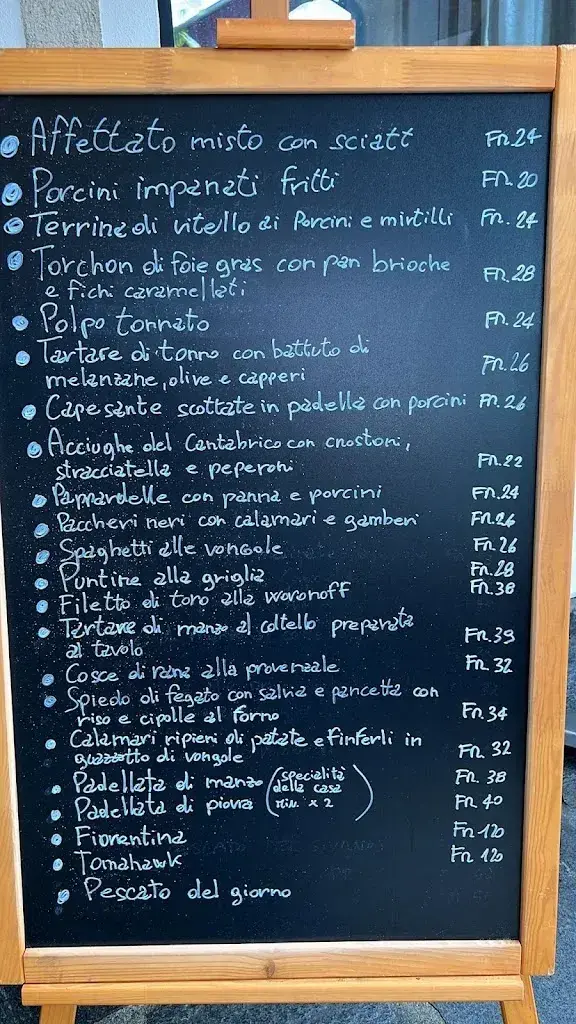 Affettato misto con sciatt Fr. 24
Porcini impanati fritti Fr. 20
Terrina di vitello ai Porcini e mirtilli Fr. 24
Torchon di foie gras con pan brioche
e fichi caramellati Fr. 28
Polpo tonnato Fr. 24
Tartare di tonno con battuto di
melanzane, olive e capperi Fr. 26
Capesante scottate in padella con porcini Fr. 26
Acciughe del Cantabrico con crostoni,
stracciatella e peperoni Fr. 22
Pappardelle con panna e porcini Fr. 24
Paccheri neri con calamari e gamberi Fr. 26
Spaghetti alle vongole Fr. 26
Puntine alla griglia Fr. 28
Filetto di toro alla woronoff Fr. 38
Tartare di manzo al coltello preparata
al tavolo Fr. 39
Cosce di rana alla provenzale Fr. 32
Spiedo di fegato con salvia e pancetta con
riso e cipolle al forno Fr. 34
Calamari ripieni di patate e finferli in
guazzetto di vongole Fr. 32
Padellata di manzo (specialità Fr. 38
della casa
Padellata di piovra min. x 2) Fr. 40
Fiorentina Fr. 120
Tomahawk Fr. 120
Pescato del giorno